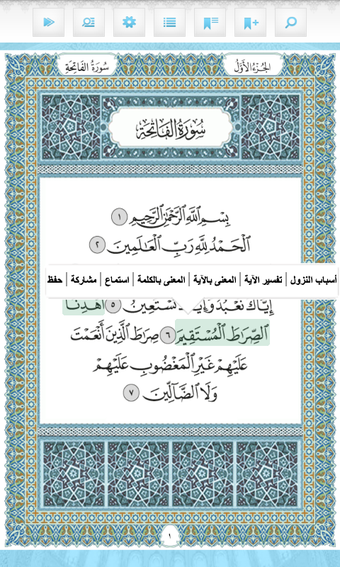 الجُزْءُ الأَوَّلُ
سُورَةُ الفَاتِحَةِ
سُورَةُ الفَاتِحَةِ
بِسْمِ اللَّهِ الرَّحْمَٰنِ الرَّحِيمِ ١
الْحَمْدُ لِلَّهِ رَبِّ الْعَالَمِينَ ٢
أسباب النزول | تفسير الآية | المعنى بالآية | المعنى بالكلمة | استماع | مشاركة | حفظ
إِيَّاكَ نَعْبُدُ وَإِيَّاكَ نَسْتَعِينُ ٥ اهْدِنَا
الصِّرَاطَ الْمُسْتَقِيمَ ٦ صِرَاطَ الَّذِينَ أَنْعَمْتَ
عَلَيْهِمْ غَيْرِ الْمَغْضُوبِ عَلَيْهِمْ
وَلَا الضَّالِّينَ ٧
١